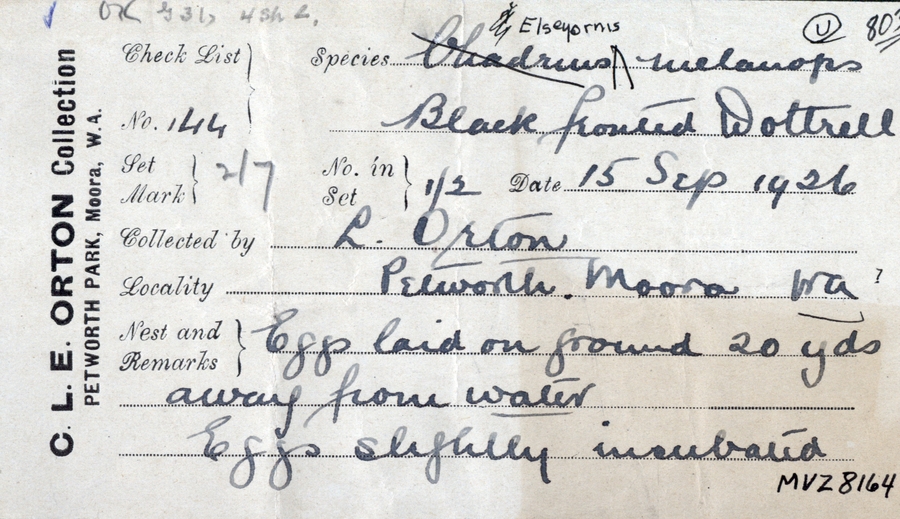 Elseyornis
U 80
Check List
Species Charadrius melanops
No. 144
Black fronted Dottrell
Set Mark 2/7
No. in Set 1/2
Date 15 Sep 1926
Collected by L. Orton
Locality Petworth. Moora WA ?
Nest and Remarks Eggs laid on ground 20 yds
away from water
Eggs slightly incubated
MVZ 8164
C. L. E. ORTON Collection
PETWORTH PARK, Moora, W.A.